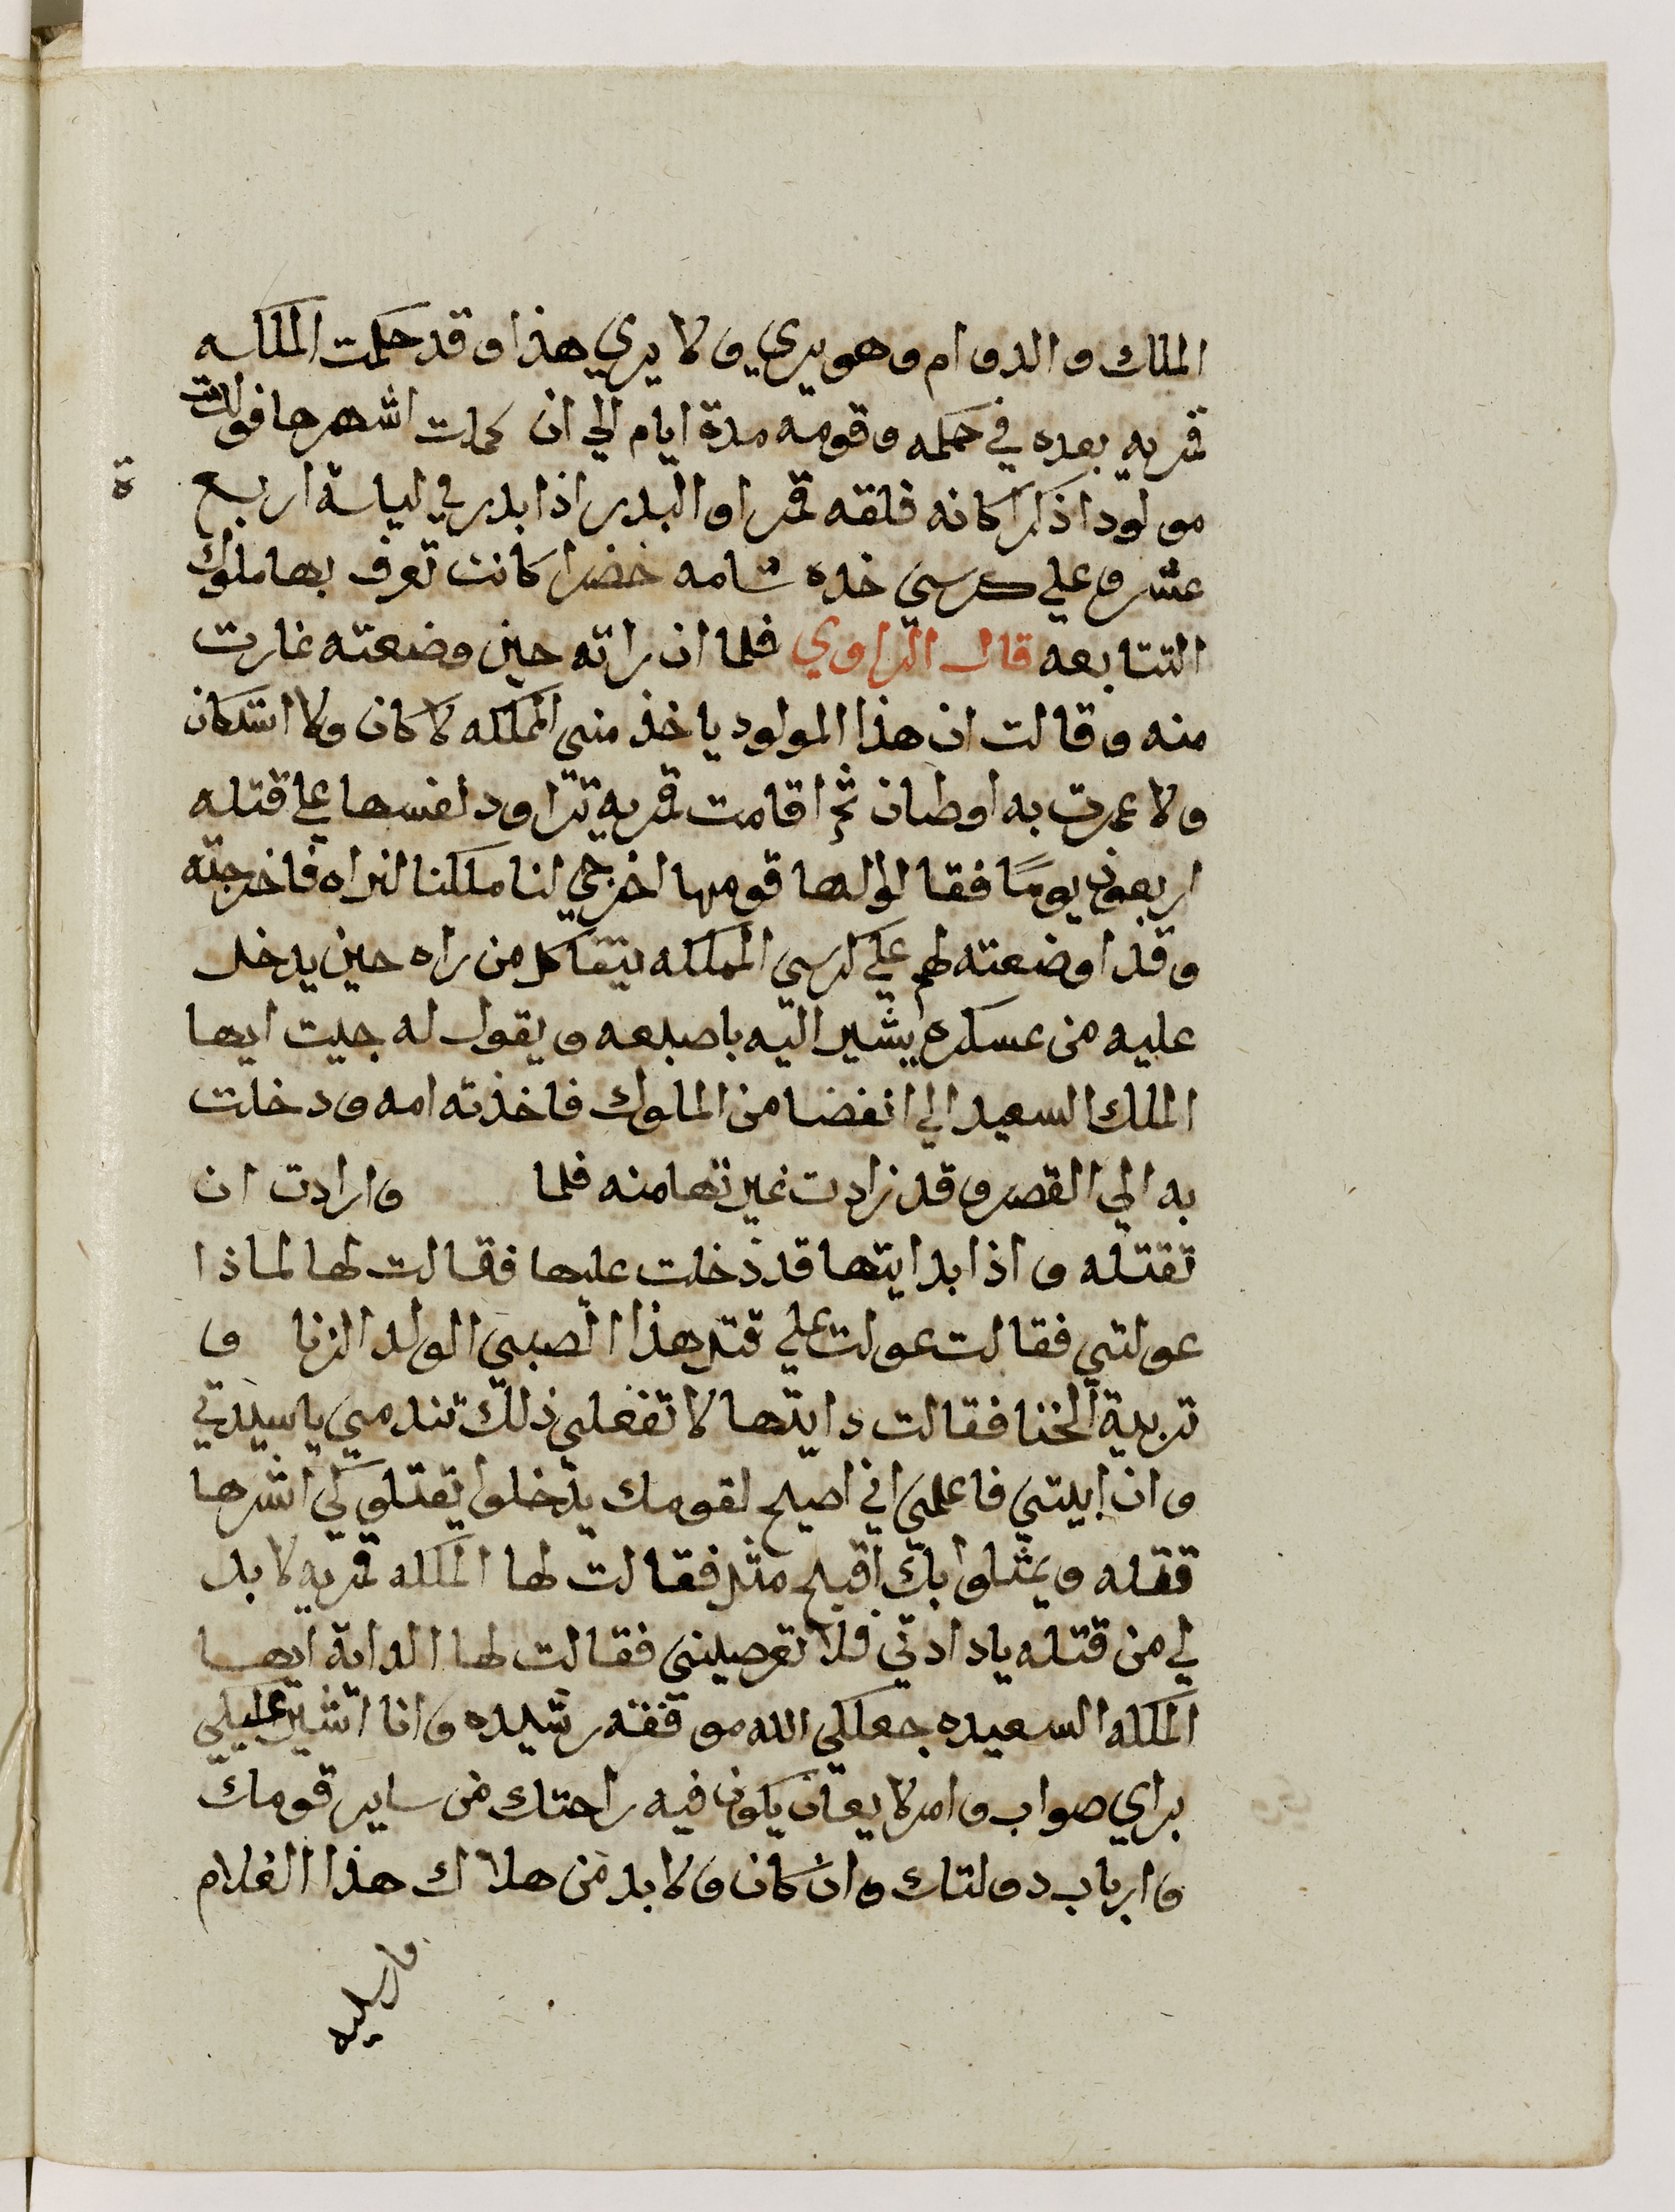 الملك والدوام وهو يري ولا يري هذا وقد حكمت الملكه
قمريه بعده في حكمه وقومه مدة ايام الي ان كملت اشهرها فولدت
مولودا ذكرا كانه فلقه قمر او البدر اذا بدر في ليلة اربع
عشر وعلي كرسي خده شامه خضرا كانت تعرف بها ملوك
التتابعه قال الراوي فلما ان راته حين وضعته غارت
منه وقالت ان هذا المولود ياخذ مني المملكه لا كان ولا استكان
ولا عمرت به اوطان ثم اقامت قمريه تراود نفسها علي قتله
اربعون يومًا فقالوا لها قومها اخرجي لنا ملكنا لنراه فاخرجته
وقد اوضعته لهم علي كرسي المملكه يتفاكل من راه حين يدخل
عليه من عسكره يشير اليه باصبعه ويقول له جيت ايها
الملك السعيد الي انفضا من الملوك فاخذته امه ودخلت
به الي القصر وقد زادت غيرتها منه فلما وارادت ان
تقتله واذا بدايتها قد دخلت عليها فقالت لها لماذا
عولتي فقالت عولت علي قتل هذا الصبي الولد الزنا و
تربية الخنا فقالت دايتها لا تفعلي ذلك تندمي يا سيدتي
وان ابيتي فاعلمي اني اصيح لقومك يدخلوا يقتلوكي اشرها
قتله ويمثلوا بك اقبح مثل فقالت لها الملكه قمريه لا بد
لي من قتله يا دادتي فلا تعرصيني فقالت لها الداية ايها
الملكه السعيده جعلكي الله موفقه رشيده وانا اشير عليكي
براي صواب وامر لا يعاب يكون فيه راحتك من ساير قومك
وارباب دولتك وان كان ولا بد من هلاك هذا الغلام
ة